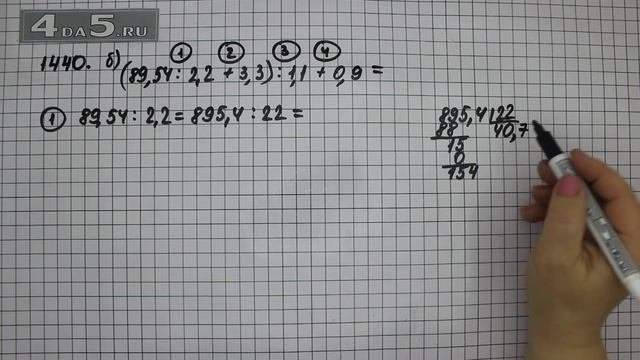 4DA5.RU
1440. б) (89,54 : 2,2 + 3,3) : 1,1 + 0,9 =
1 2 3 4
1 89,54 : 2,2 = 895,4 : 22 =
895,4 22
88 40,7
15
0
154